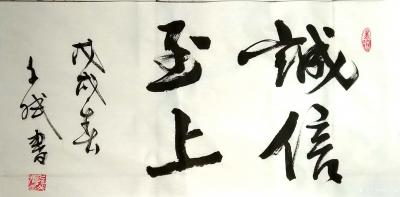 誠信
至上
戊戌春
王斌書